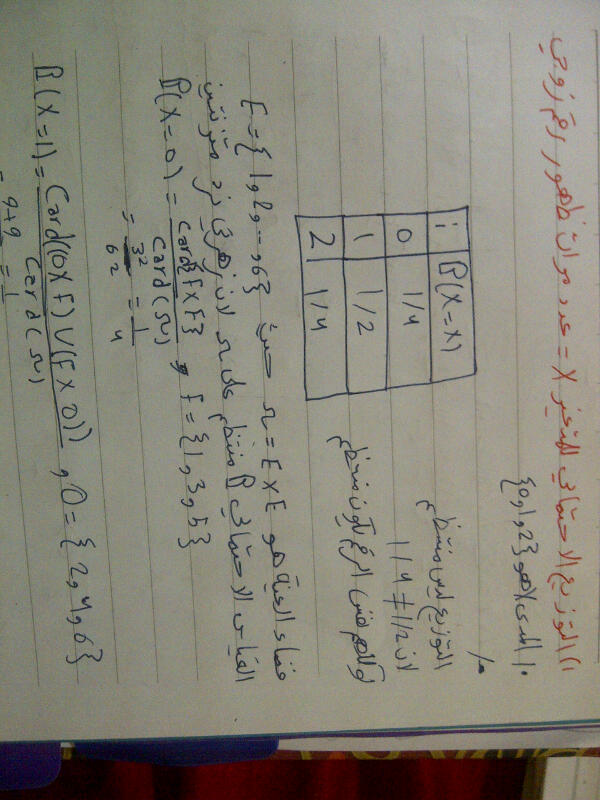 1) التوزيع الاحتمالي للمتغير X = عدد مرات ظهور رقم زوجي
1. المدى لـ X هو {0,1,2}
i | P(X=x)
0 | 1/4
1 | 1/2
2 | 1/4
التوزيع ليس منتظم
لأن 1/2 ≠ 1/4
فضاء العينة هو Ω = E×E حيث E = {1,2,...,6}
القياس الاحتمالي P منتظم على Ω لأن زهرتي نرد متزنتين
P(X=0) = Card{F×F} / Card(Ω) , F = {1,3,5}
= 3² / 6² = 1/4
P(X=1) = Card((O×F)∪(F×O)) / Card(Ω) , O = {2,4,6}
= 9+9 = 1